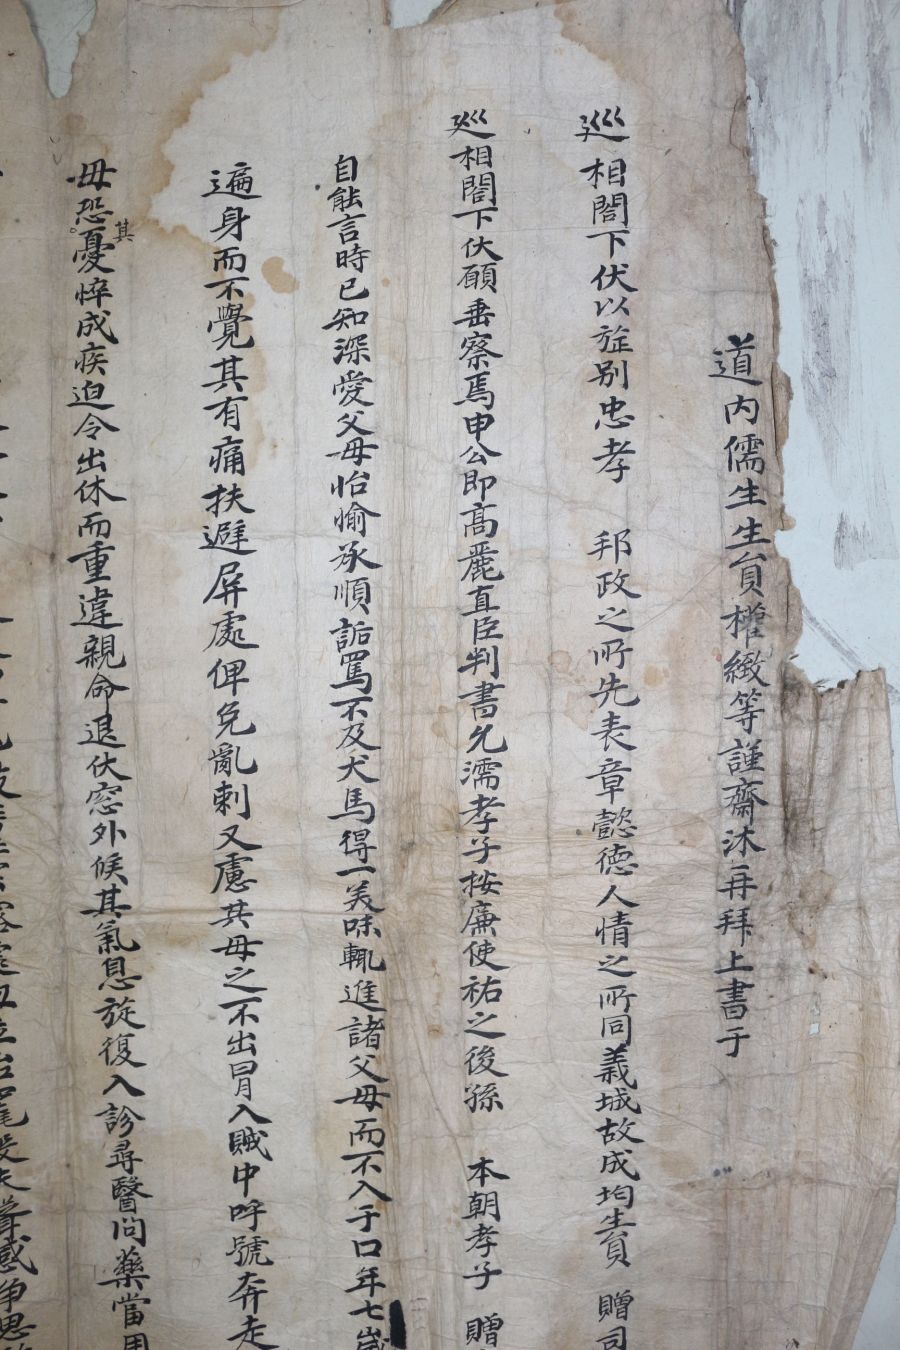 道內儒生生員權緻等謹齋沐再拜上書于
巡相閤下伏以旌別忠孝 邦政之所先表章懿德人情之所同義城故成均生員 贈司
巡相閤下伏願垂察焉申公即高麗直臣判書允濡孝子按廉使祐之後孫 本朝孝子 贈
自能言時已知深愛父母怡愉承順詬罵不及犬馬得一美味輒進諸父母而不入于口年七歲
遍身而不覺其有痛扶避屏處俾免亂刺又慮其母之不出冒入賊中呼號奔走
母恐其憂悴成疾迫令出休而重違親命退伏窓外候其氣息旋復入診尋醫問藥當用